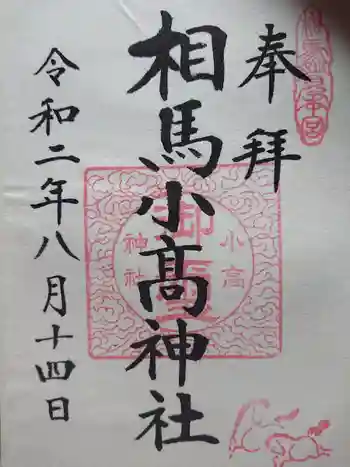 奉拝
相馬小高神社
令和二年八月十四日
小高
神社